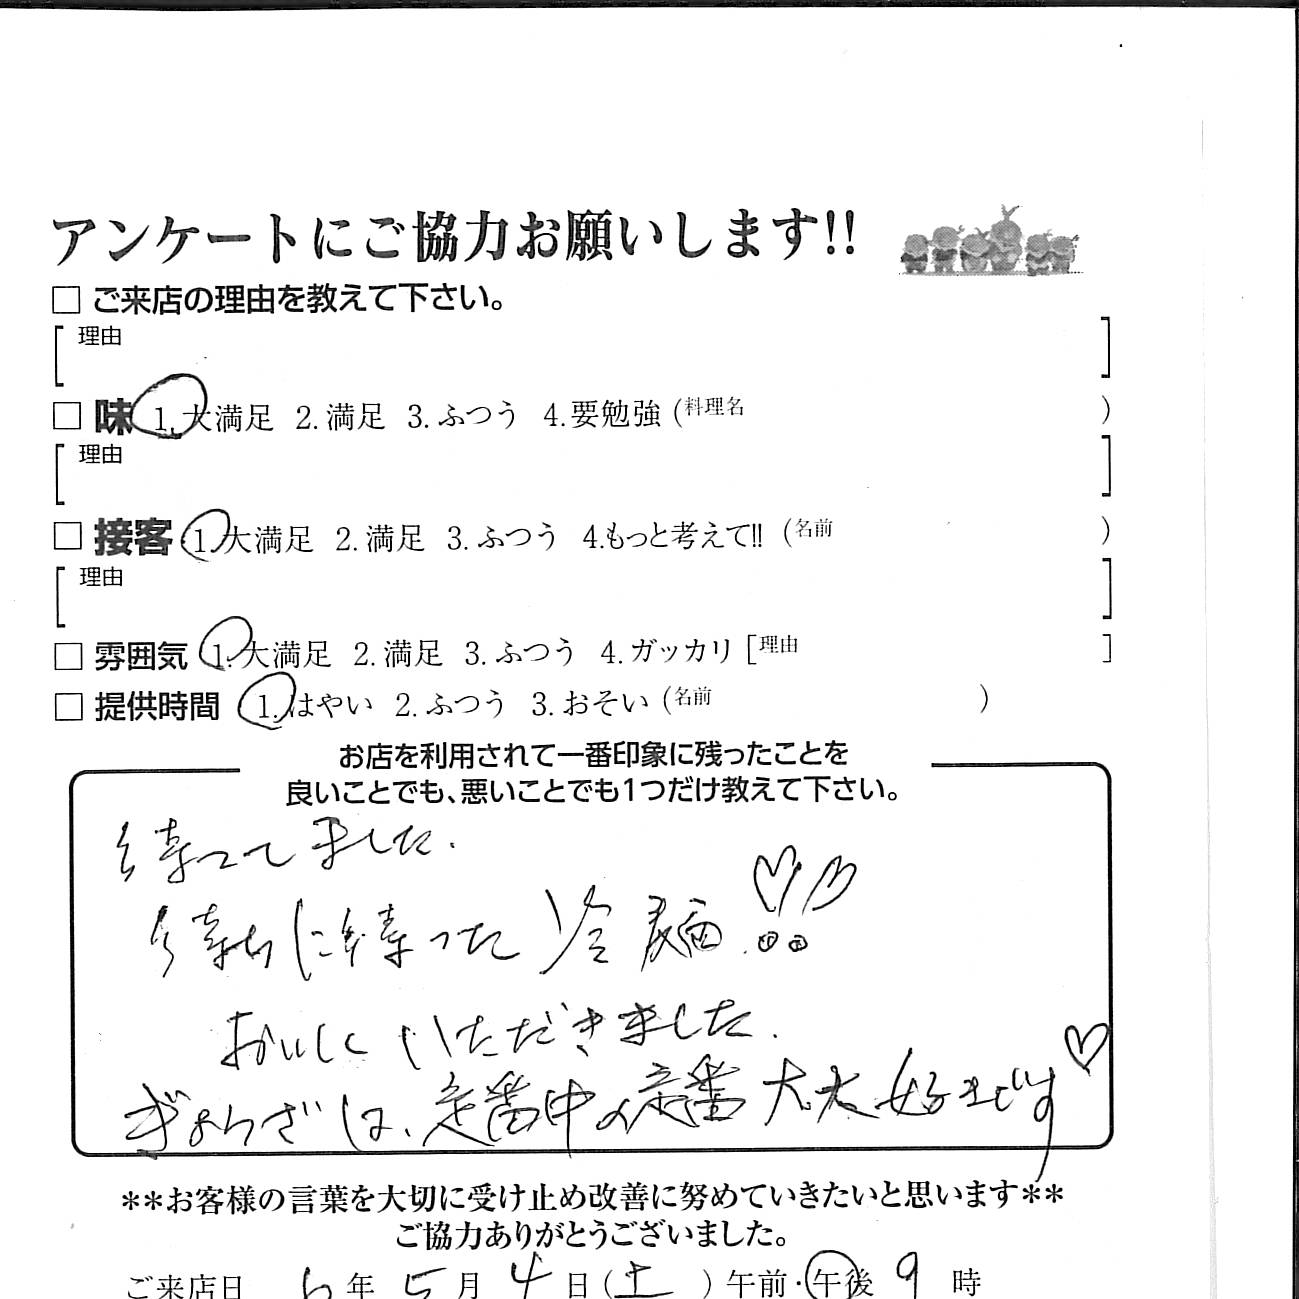 アンケートにご協力お願いします!!
□ ご来店の理由を教えて下さい。
[理由 ]
□ 味 1.大満足 2.満足 3.ふつう 4.要勉強 (料理名 )
[理由 ]
□ 接客 1.大満足 2.満足 3.ふつう 4.もっと考えて!! (名前 )
[理由 ]
□ 雰囲気 1.大満足 2.満足 3.ふつう 4.ガッカリ [理由 ]
□ 提供時間 1.はやい 2.ふつう 3.おそい (名前 )
お店を利用されて一番印象に残ったことを
良いことでも、悪いことでも1つだけ教えて下さい。
待ってました.
待ちに待った 冷麺♡♡!!
おいしく いただきました.
ぎょうざは、定番中の定番 大大好きです♡
**お客様の言葉を大切に受け止め改善に努めていきたいと思います**
ご協力ありがとうございました。
ご来店日 6年 5月 4日(土)午前・午後 9時